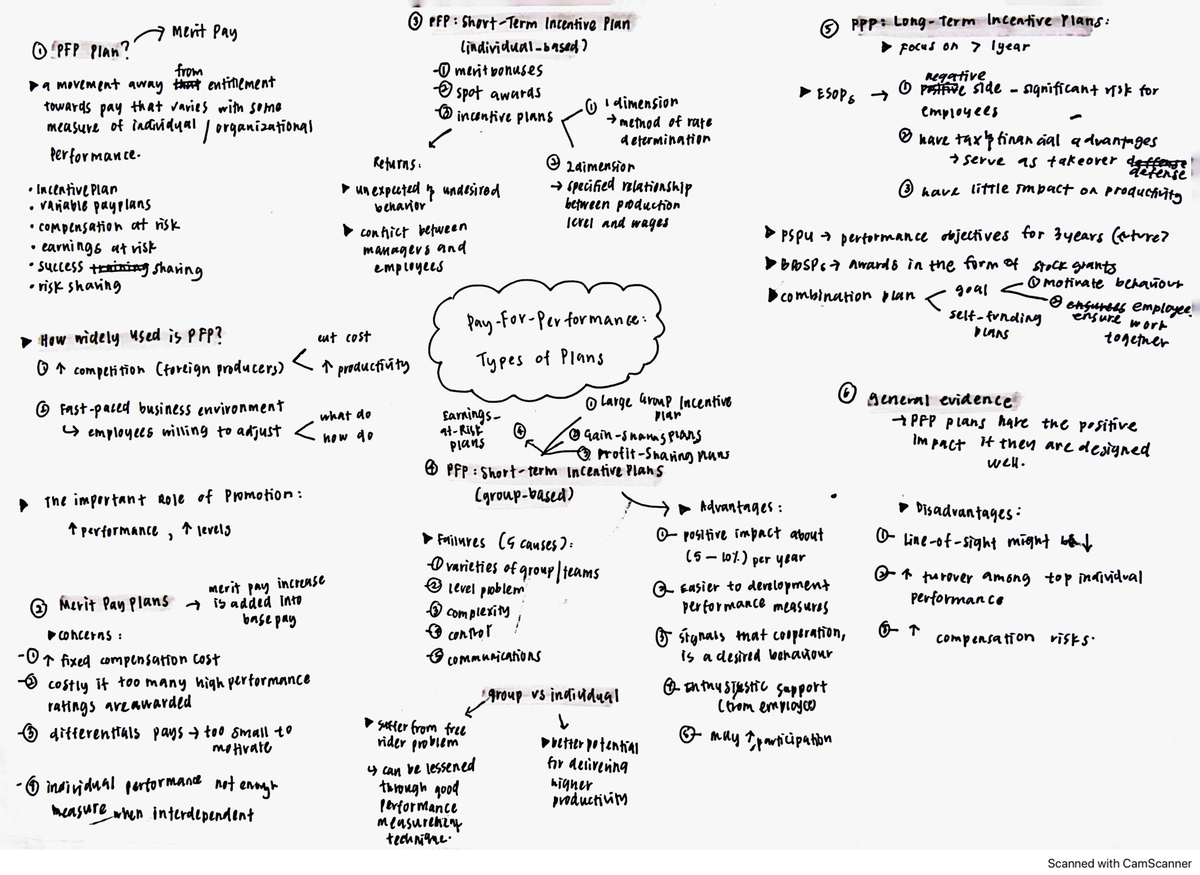 ① PFP Plan?
Merit Pay
a movement away from entitlement
towards pay that varies with some
measure of individual / organizational
performance.
• Incentive Plan
• variable payplans
• compensation at risk
• earnings at risk
• success sharing
• risk sharing
How widely used is PFP?
① ↑ competition (foreign producers)
cut cost
↑ productivity
② Fast-paced business environment
↳ employees willing to adjust
what do
how do
The important Role of Promotion:
↑ performance, ↑ levels
② Merit Pay Plans
→ merit pay increase
is added into
base pay
concerns:
-① ↑ fixed compensation cost
-② costly if too many high performance
ratings are awarded
-③ differentials pays → too small to
motivate
-④ individual performance not enough
measure when interdependent
③ PFP: Short-Term Incentive Plan
(individual-based)
-① merit bonuses
-② spot awards
-③ incentive plans
① 1 dimension
→ method of rate
determination
② 2 dimension
→ specified relationship
between production
level and wages
Returns:
unexpected & undesired
behavior
conflict between
managers and
employees
Pay-For-Performance:
Types of Plans
① Large Group Incentive
Plan
② Gain-sharing plans
③ Profit-Sharing Plans
④ Earnings-
at-Risk
plans
④ PFP: Short-term Incentive Plans
(group-based)
Failures (5 causes):
-① varieties of group/teams
-② level problem
-③ complexity
-④ control
-⑤ communications
group vs individual
suffer from free
rider problem
↳ can be lessened
through good
performance
measurement
technique.
better potential
for delivering
higher
productivity
Advantages:
①- positive impact about
(5-10%) per year
②- Easier to development
performance measures
③- Signals that cooperation,
is a desired behaviour
④- Enthusiastic support
(from employee)
⑤- may ↑ participation
Disadvantages:
①- Line-of-sight might ↓
②- ↑ turnover among top individual
performance
③- ↑ compensation risks.
⑤ PPP: Long-Term Incentive Plans:
Focus on > 1 year
ESOPs → ① negative side - significant risk for
employees
② have tax & financial advantages
→ serve as takeover defense
③ have little impact on productivity
PSPU → performance objectives for 3 years
BBSPs → Awards in the form of stock grants
combination plan
goal
① motivate behaviour
② ensure employee
work
together
self-funding
plans
⑥ general evidence
→ PFP plans have the positive
impact if they are designed
well.
Scanned with CamScanner